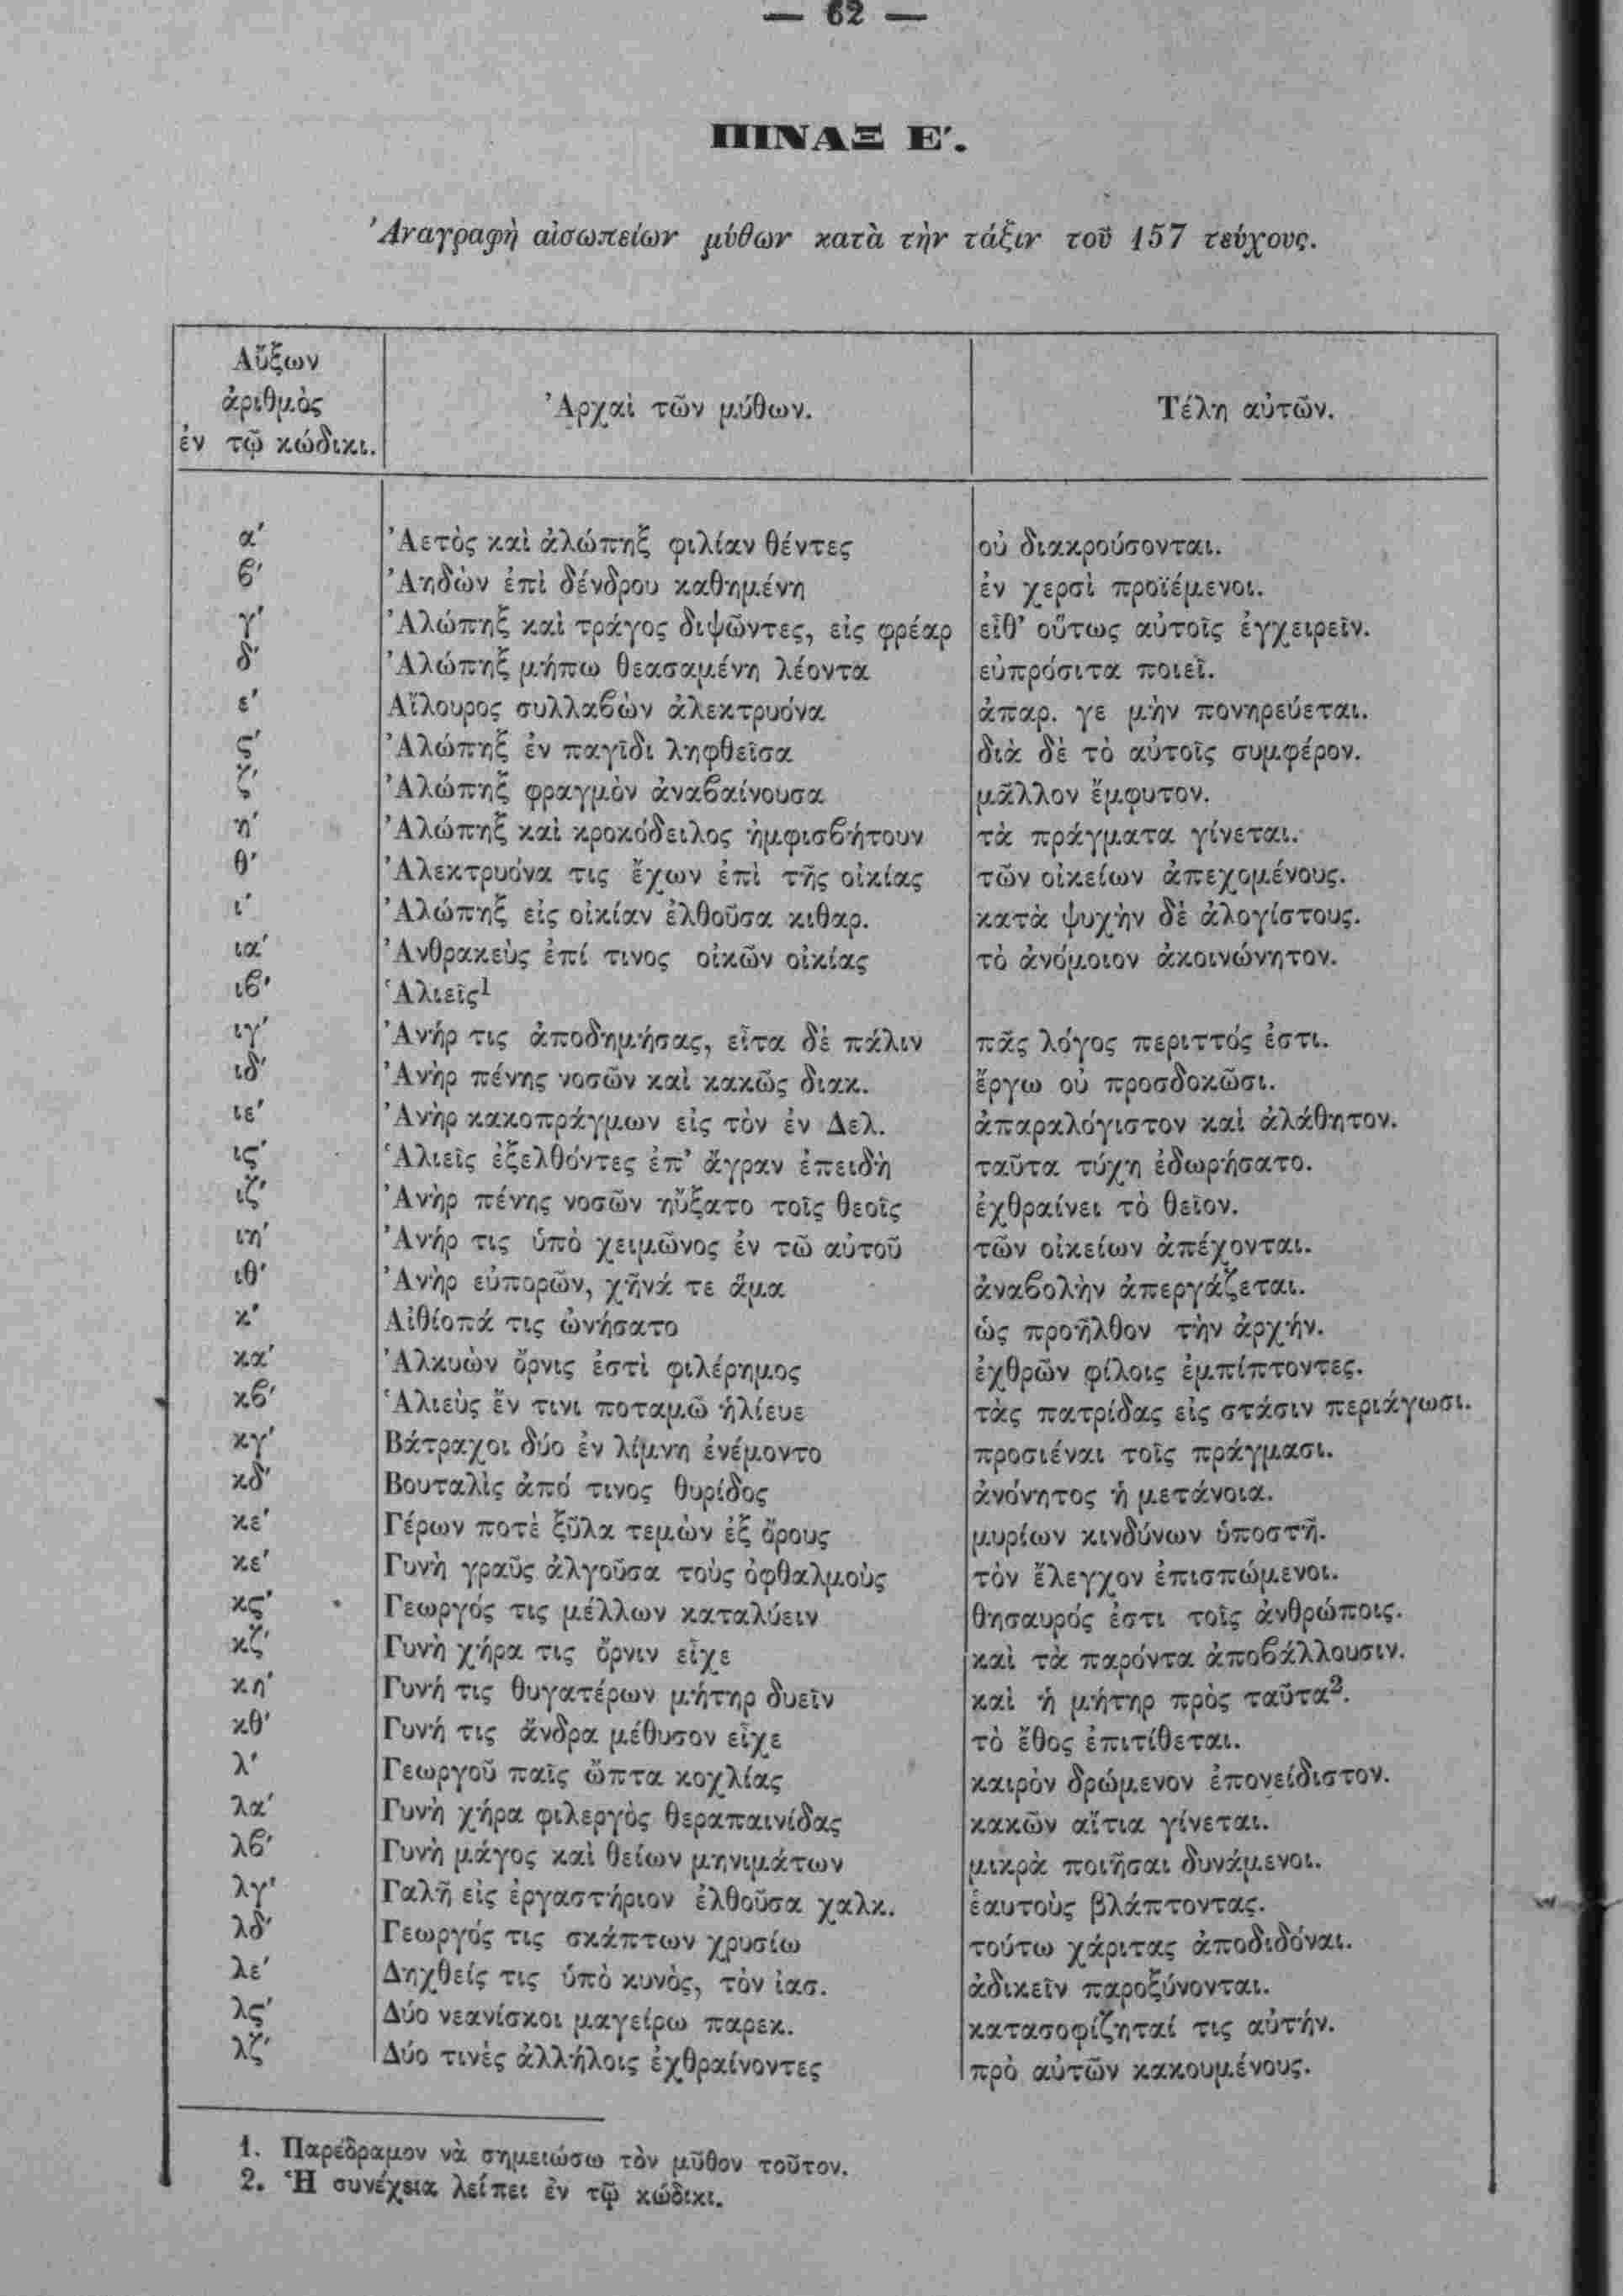 — 62 —
ΠΙΝΑΞ Ε'.
Ἀναγραφὴ αἰσωπείων μύθων κατὰ τὴν τάξιν τοῦ 157 τεύχους.
Αὔξων
ἀριθμὸς
ἐν τῷ κώδικι.
Ἀρχαὶ τῶν μύθων.
Τέλη αὐτῶν.
α' Ἀετὸς καὶ ἀλώπηξ φιλίαν θέντες οὐ διακρούσονται.
ϐ' Ἀηδὼν ἐπὶ δένδρου καθημένη ἐν χερσὶ προϊέμενοι.
γ' Ἀλώπηξ καὶ τράγος διψῶντες, εἰς φρέαρ εἶθ' οὕτως αὐτοῖς ἐγχειρεῖν.
δ' Ἀλώπηξ μήπω θεασαμένη λέοντα εὐπρόσιτα ποιεῖ.
ε' Αἴλουρος συλλαϐὼν ἀλεκτρυόνα ἀπαρ. γε μὴν πονηρεύεται.
ς' Ἀλώπηξ ἐν παγῖδι ληφθεῖσα διὰ δὲ τὸ αὐτοῖς συμφέρον.
ζ' Ἀλώπηξ φραγμὸν ἀναϐαίνουσα μᾶλλον ἔμφυτον.
η' Ἀλώπηξ καὶ κροκόδειλος ἠμφισϐήτουν τὰ πράγματα γίνεται.
θ' Ἀλεκτρυόνα τις ἔχων ἐπὶ τῆς οἰκίας τῶν οἰκείων ἀπεχομένους.
ι' Ἀλώπηξ εἰς οἰκίαν ἐλθοῦσα κιθαρ. κατὰ ψυχὴν δὲ ἀλογίστους.
ια' Ἀνθρακεὺς ἐπί τινος οἰκῶν οἰκίας τὸ ἀνόμοιον ἀκοινώνητον.
ιϐ' Ἁλιεῖς¹
ιγ' Ἀνήρ τις ἀποδημήσας, εἶτα δὲ πάλιν πᾶς λόγος περιττός ἐστι.
ιδ' Ἀνὴρ πένης νοσῶν καὶ κακῶς διακ. ἔργω οὐ προσδοκῶσι.
ιε' Ἀνὴρ κακοπράγμων εἰς τὸν ἐν Δελ. ἀπαραλόγιστον καὶ ἀλάθητον.
ις' Ἁλιεῖς ἐξελθόντες ἐπ' ἄγραν ἐπειδὴ ταῦτα τύχη ἐδωρήσατο.
ιζ' Ἀνὴρ πένης νοσῶν ηὔξατο τοῖς θεοῖς ἐχθραίνει τὸ θεῖον.
ιη' Ἀνήρ τις ὑπὸ χειμῶνος ἐν τῶ αὐτοῦ τῶν οἰκείων ἀπέχονται.
ιθ' Ἀνὴρ εὐπορῶν, χῆνά τε ἅμα ἀναϐολὴν ἀπεργάζεται.
κ' Αἰθίοπά τις ὠνήσατο ὡς προῆλθον τὴν ἀρχήν.
κα' Ἀλκυὼν ὄρνις ἐστὶ φιλέρημος ἐχθρῶν φίλοις ἐμπίπτοντες.
κϐ' Ἁλιεὺς ἔν τινι ποταμῶ ἡλίευε τὰς πατρίδας εἰς στάσιν περιάγωσι.
κγ' Βάτραχοι δύο ἐν λίμνη ἐνέμοντο προσιέναι τοῖς πράγμασι.
κδ' Βουταλὶς ἀπό τινος θυρίδος ἀνόνητος ἡ μετάνοια.
κε' Γέρων ποτὲ ξῦλα τεμὼν ἐξ ὄρους μυρίων κινδύνων ὑποστῆ.
κε' Γυνὴ γραῦς ἀλγοῦσα τοὺς ὀφθαλμοὺς τὸν ἔλεγχον ἐπισπώμενοι.
κς' Γεωργός τις μέλλων καταλύειν θησαυρός ἐστι τοῖς ἀνθρώποις.
κζ' Γυνὴ χήρα τις ὄρνιν εἶχε καὶ τὰ παρόντα ἀποϐάλλουσιν.
κη' Γυνή τις θυγατέρων μήτηρ δυεῖν καὶ ἡ μήτηρ πρὸς ταῦτα².
κθ' Γυνή τις ἄνδρα μέθυσον εἶχε τὸ ἔθος ἐπιτίθεται.
λ' Γεωργοῦ παῖς ὤπτα κοχλίας καιρὸν δρώμενον ἐπονείδιστον.
λα' Γυνὴ χήρα φιλεργὸς θεραπαινίδας κακῶν αἴτια γίνεται.
λϐ' Γυνὴ μάγος καὶ θείων μηνιμάτων μικρὰ ποιῆσαι δυνάμενοι.
λγ' Γαλῆ εἰς ἐργαστήριον ἐλθοῦσα χαλκ. ἑαυτοὺς βλάπτοντας.
λδ' Γεωργός τις σκάπτων χρυσίω τούτω χάριτας ἀποδιδόναι.
λε' Δηχθείς τις ὑπὸ κυνὸς, τὸν ἰασ. ἀδικεῖν παροξύνονται.
λς' Δύο νεανίσκοι μαγείρω παρεκ. κατασοφίζηταί τις αὐτήν.
λζ' Δύο τινὲς ἀλλήλοις ἐχθραίνοντες πρὸ αὐτῶν κακουμένους.
1. Παρέδραμον νὰ σημειώσω τὸν μῦθον τοῦτον.
2. Ἡ συνέχεια λείπει ἐν τῷ κώδικι.